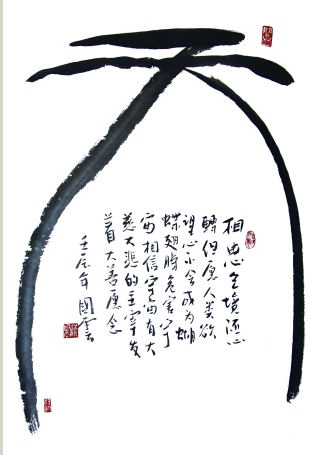 天
相由心生境随心
轉但愿人类欲
望心不会成为蝴
蝶翅膀危害宇
宙相信宇宙有大
慈大悲的主宰发
着大善愿念
壬辰年國雲